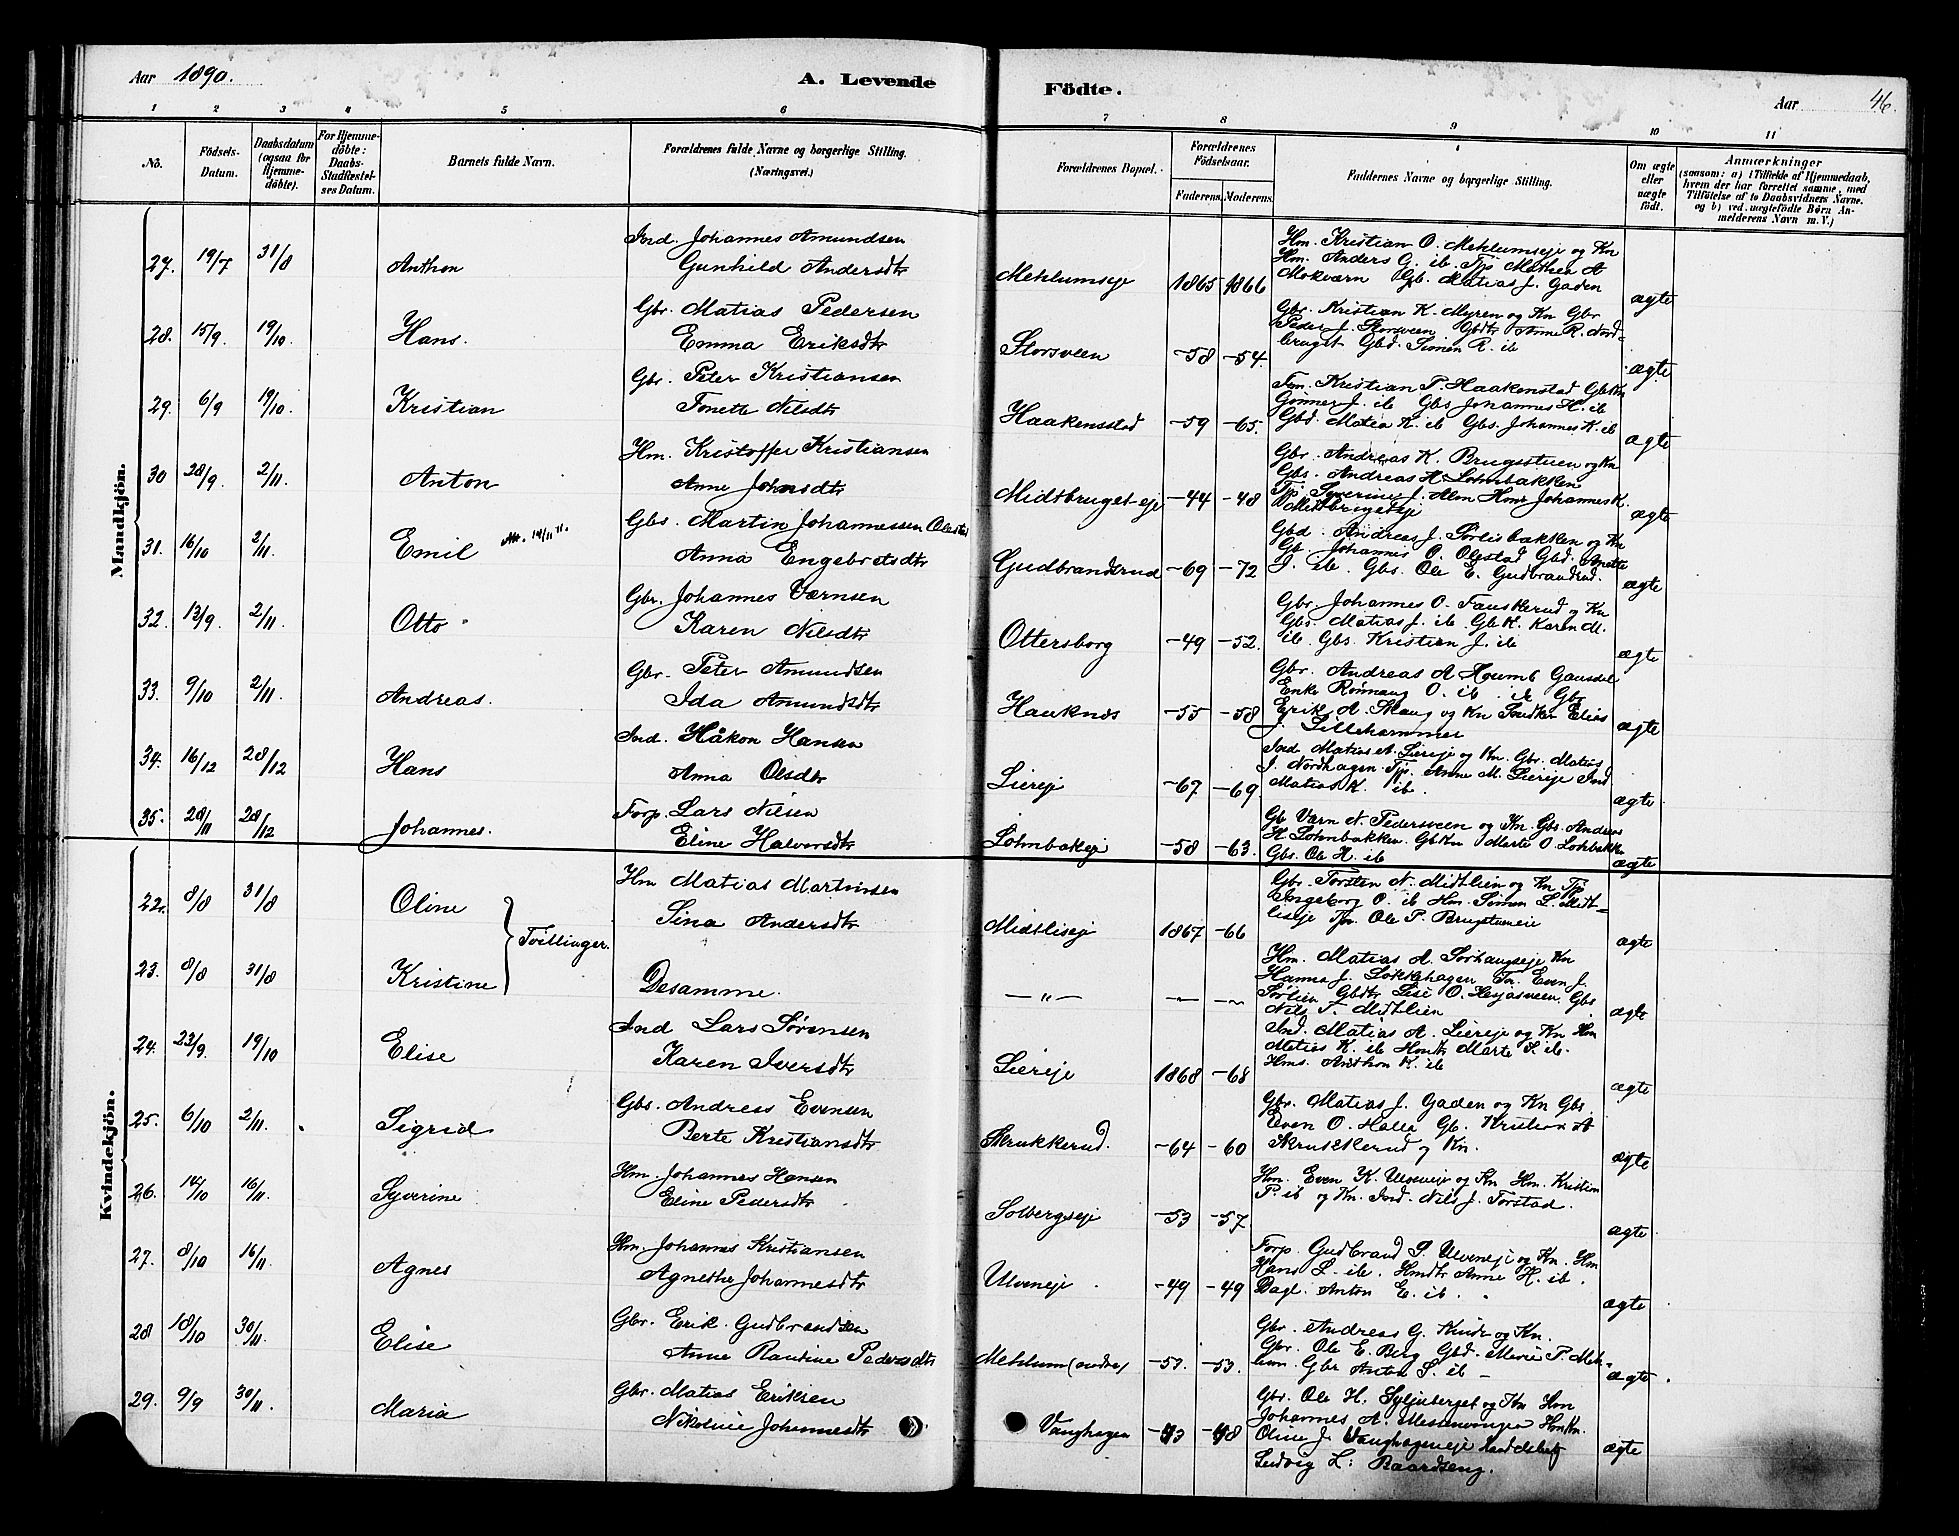 Aar 1890.
A. Levende
Födte.
Aar
46.
1 2 3 4 5 6 7 8 9 10 11
No.
Födsels-
Datum.
Daabsdatum
(ogsaa for
Hjemme-
döbte).
For Hjemme-
döbte:
Daabs-
Stadfæstel-
ses Datum.
Barnets fulde Navn.
Forældrenes fulde Navne og borgerlige Stilling.
(Næringsvei.)
Forældrenes Bopæl.
Forældrenes
Födselsaar.
Faderens. Moderens.
Faddernes Navne og borgerlige Stilling.
Om ægte
eller
uægte
födt.
Anmærkninger
(saasom: a) i Tilfælde af Hjemmedaab,
hvem der har forrettet samme, med
Tilföielse af to Daabsvidners Navne.
og b) ved uægtefödte Börn An-
melderens Navn m. V.)
Mandkjön.
27. 19/7 31/8 Anthon
Ind. Johannes Amundsen
Gunhild Andersdtr
Mehlumseje 1865 1866
Hm. Kristian O. Mehlumseje og Kn
Hm. Anders G. ib Tjp Mathea A
Mokværn Gb. Matias J. Gaden
ægte
28. 15/9 19/10 Hans.
Gbr. Matias Pedersen
Emma Eriksdtr
Storsveen -58 -54.
Gbr. Kristian K. Myren og Kn Gbr
Peder J. Storsveen Gbdtr Anne R. Nord-
bruget Gbd. Simen R. ib
ægte
29. 6/9 19/10. Kristian
Gbr. Peter Kristiansen
Tonette Nilsdtr
Haakensstad -59 -65.
Fm. Kristian P. Haakenstad GbKn
Gunner J. ib Gbs Johannes H. ib
Gbd. Matea K. ib Gbs. Johannes K. ib
ægte
30 28/9 2/11. Anton
Hm. Kristoffer Kristiansen
Anne Johnsdtr
Midtbruget-eje -44 -48
Gbr. Andreas K. Brugsstuen og Kn
Gbs. Andreas H. Lohnbakken
Tjp Syverine J. Alm Hms Johannes K.
Midtbrugetseje
ægte
31. 16/10 2/11. Emil
Gbs. Martin Johannessen Olestad
Anna Engebretsdtr
Gudbrandsrud -69 -72
Gbd. Andreas J. Sörlisbakken og Kn
Gb. Johannes O. Olestad Gbd. Anette
J. ib. Gbs. Ole E. Gudbrandsrud.
ægte
32. 13/9. 2/11. Otto
Gbr. Johannes Værnsen
Karen Nilsdtr
Ottersborg -49 -52.
Gbr. Johannes O. Fauskerud og Kn
Gbs. Matias J. ib GbK. Karen M.
ib Gbs. Kristian J. ib
ægte
33. 9/10 2/11. Andreas.
Gbr. Peter Amundsen
Ida Amundsdtr
Hauknes -55 -58
Gbr. Andreas A Houmb Gausdal
Enke Rønnaug O. ib ib Gbr
Erik A. Skaug og Kn Snedker Elias
J. Lillehammer
ægte
34. 16/12 28/12 Hans
Ind. Håkon Hansen
Anna Olsdtr
Liereje -67 -69
Ind Matias A. Liereje og Kn. Gbr. Matias
J. Nordhagen Tjp. Anne M. Liereje Ind
Matias K. ib.
ægte
35. 28/11 28/12 Johannes.
Forp. Lars Nilsen
Eline Halvorsdtr
Lohnbakeje -58 -63.
Gb Værn N. Pedersveen og Kn. Gbs. Andreas
H. Lohnbakken. GbKn Marte O. Lohnbakken
Gbs. Ole H. ib
ægte
Kvindekjön.
22. 8/8 31/8 Oline
Hm Matias Martinsen
Sina Andersdtr
Midtliseje 1867 -66
Gbr. Torsten N. Midtlien og Kn Tjp
Ingeborg O. ib Hm. Simen L. Midt-
liseje Tjn. Ole P. Brugstueneie
ægte
Tvillinger.
23. 8/8 31/8 Kristine
Desamme.
— " —
Hm. Matias A. Sørhaugseje Kn
Hanna J. Løkkehagen Tn. Even J.
Sørlien Gbdtr Lise O. Hejasveen. Gbs
Nils T. Midtlien
ægte
24. 23/9 19/10 Elise
Ind Lars Sørensen
Karen Iversdtr
Liereje 1868 -68
Ind. Matias A. Liereje og Kn Hm
Matias K. ib Hmdtr Marte S. ib.
Hms. Anthon K. ib
ægte
25. 6/10 2/11. Sigrid
Gbs. Andreas Evensen
Berte Kristiansdtr
Skrukkerud. -64 -60
Gbr. Matias J. Gaden og Kn Gbs.
Even O. Holla Gb. Kristian A
Skrukkerud og Kn.
ægte
26. 14/10 16/11. Syverine
Hm. Johannes Hansen
Eline Pedersdtr
Solbergseje -53 -57.
Hm. Even K. Ulveneje og Kn Hm. Kristian
P. ib og Kn. Ind. Nils J. Torstad.
ægte
27. 8/10 16/11. Agnes
Hm. Johannes Kristiansen
Agnethe Johannesdtr
Ulveneje -49 -49
Forp. Gudbrand S. Ulveneje og Kn. Hm
Hans L. ib. Hmdtr Anne H. ib.
Dagl. Anton E. ib.
ægte
28 18/10 30/11 Elise
Gbr. Erik Gudbrandsen
Anne Rantine Pedersdtr
Mehlum (nedre) -57. -53.
Gbr. Andreas G. Kinde og Kn.
Gbr. Ole E. Berg Gbd. Marie P. Meh-
lum. Gbr Anton S. ib
ægte
29. 9/9 30/11. Maria
Gbr. Matias Eriksen
Nikoline Johannesdtr
Vaughagen -43 -48
Gbr. Ole H. Syljuberget og Kn Hm
Johannes A. Messenvingen HmKn.
Oline J. Vaughageneje Handelsbetj
Ludvig L. Baardseng.
ægte